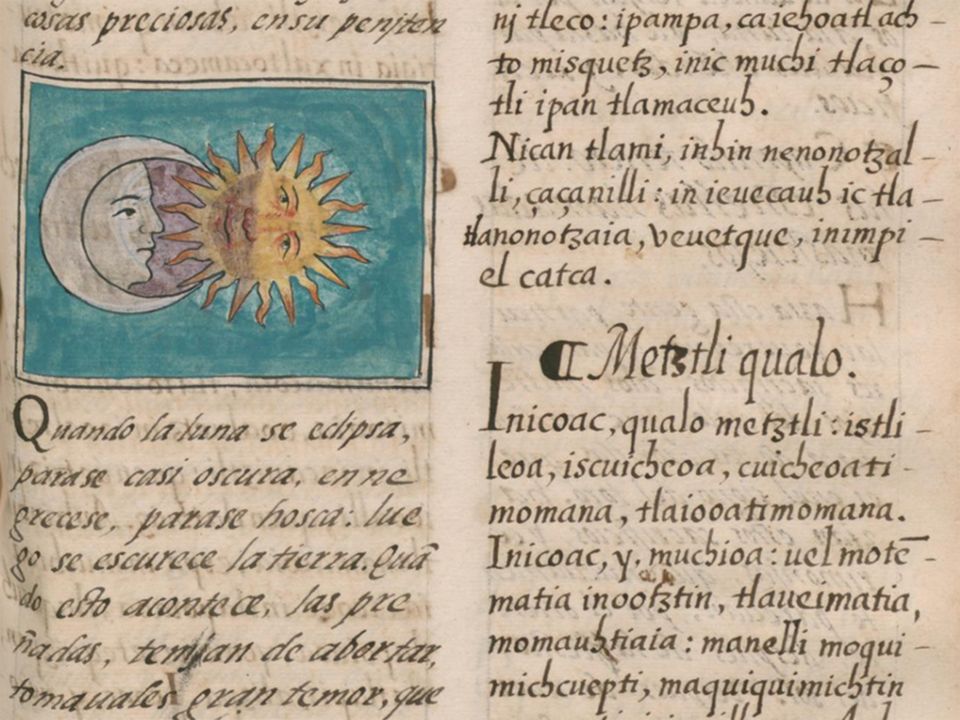 cosas preciosas, en su peniten
cia.
Quando la luna se eclipsa,
parase casi oscura, en ne
grecese, parase hosca: lue
go se escurece la tierra. Quã
do esto acontece, las pre
ñadas, temjan de abortar,
tomauales gran temor, que
nj tleco: ipampa, ca iehoatl ach
to misquetz, inic muchi tlaço
tli ipan tlamaceuh.
Nican tlami, inhin nenonotzal
li, çaçanilli: in ieuecauh ic tla
tlanonotzaia, veuetque, in impi
el catca.
¶ Metztli qualo.
Inicoac, qualo metztli: istli
leoa, iscuicheoa, cuicheoati
momana, tlaiooatimomana.
Inicoac, y, muchioa: uel motē
matia inootztin, tlaueimatia,
momauhtiaia: manelli moqui
michcuepti, maquiquimichtin